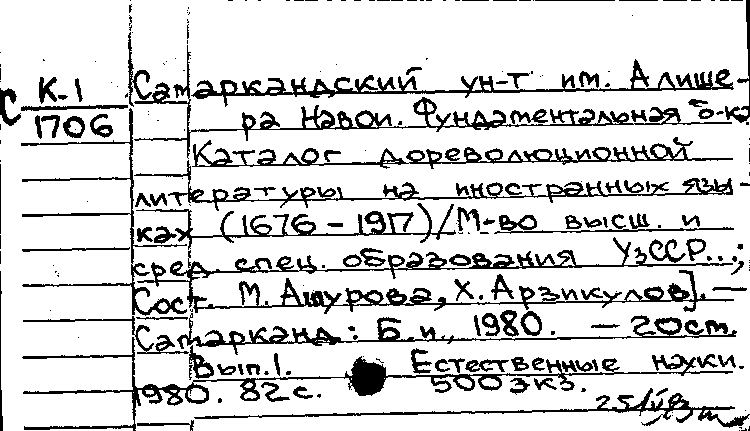 С К-1
1706
Самаркандский ун-т им. Алише-
ра Навои. Фундаментальная б-ка
Каталог дореволюционной
литературы на иностранных язы-
ках (1676 – 1917)/М-во высш. и
сред. спец. образования УзССР...;
Сост. М. Ашурова, Х. Арзикулов]. –
Самарканд: Б.и., 1980. – 20 см.
Вып.1. Естественные науки.
1980. 82 с. 500 экз.